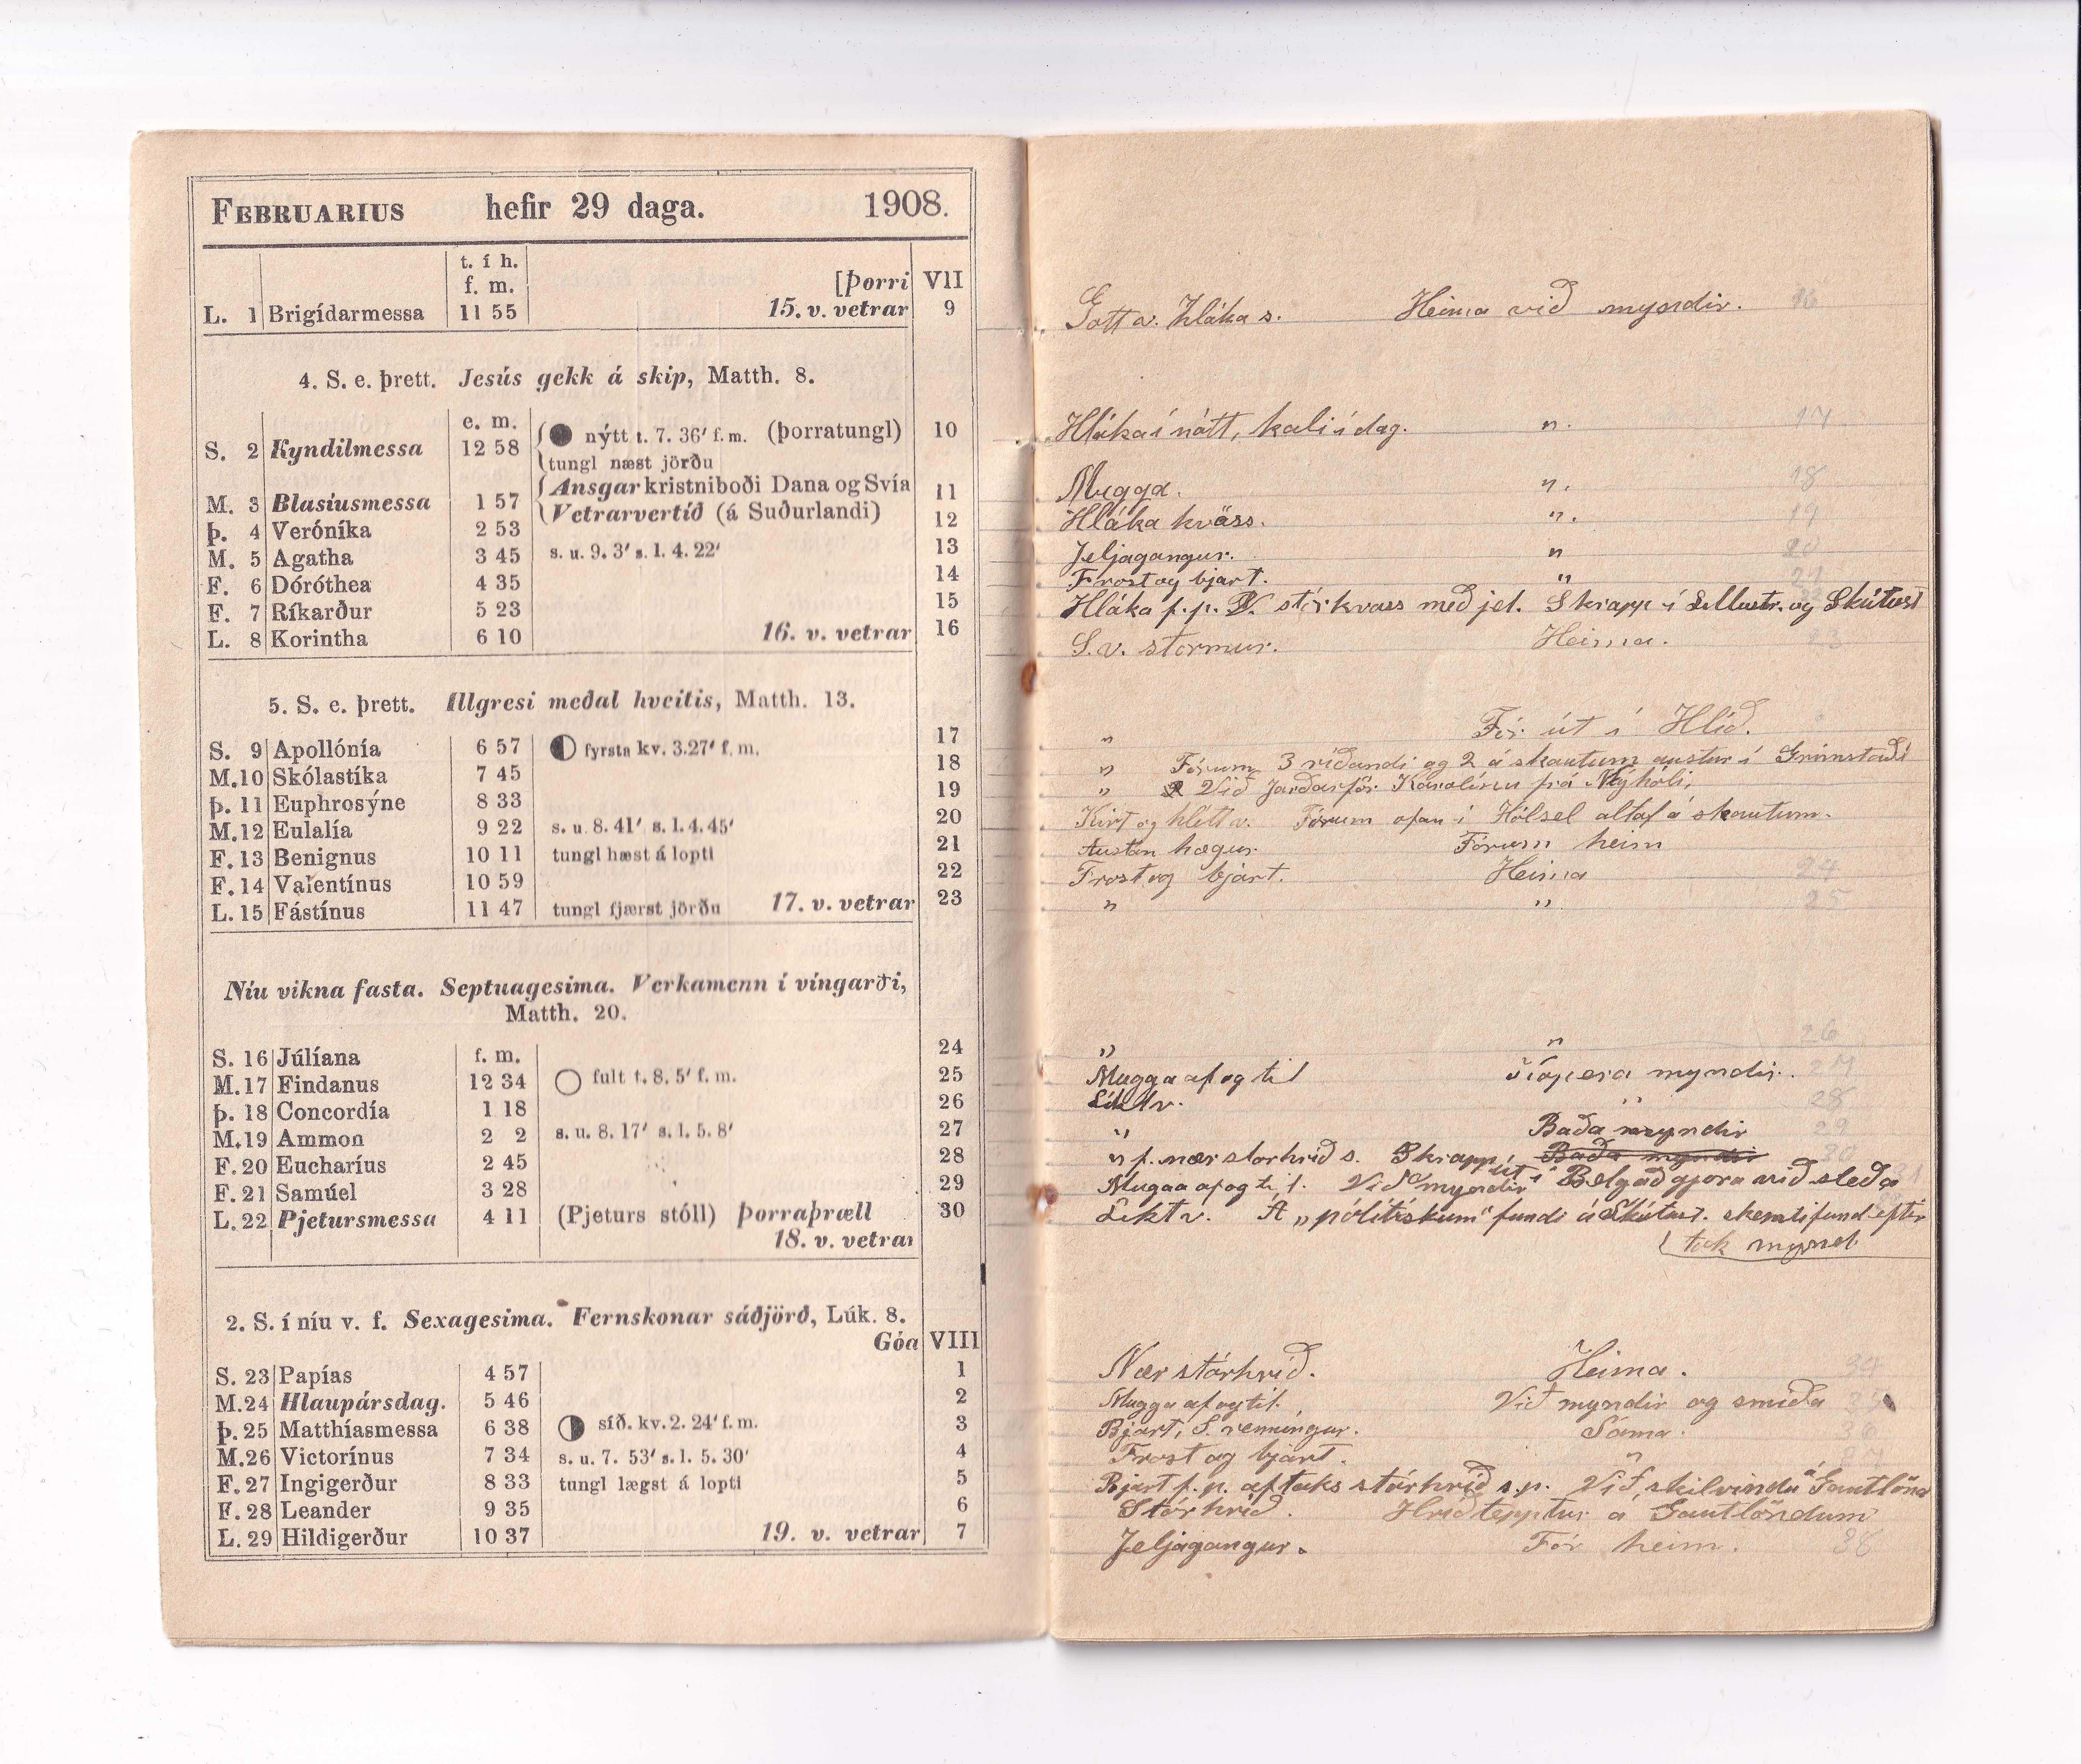 FEBRUARIUS hefir 29 daga. 1908.
t. í h.
f. m. [Þorri VII
L. 1 Brigídarmessa 11 55 15. v. vetrar 9
4. S. e. þrett. Jesús gekk á skip, Matth. 8.
e. m. nýtt t. 7. 36′ f. m. (þorratungl) 10
S. 2 Kyndilmessa 12 58 tungl næst jörðu
Ansgar kristniboði Dana og Svía 11
M. 3 Blasíusmessa 1 57 Vetrarvertíð (á Suðurlandi)
Þ. 4 Verónika 2 53 12
M. 5 Agatha 3 45 s. u. 9. 3′ s. l. 4. 22′ 13
F. 6 Dóróthea 4 35 14
F. 7 Ríkarður 5 23 15
L. 8 Korintha 6 10 16. v. vetrar 16
5. S. e. þrett. Illgresi meðal hveitis, Matth. 13.
S. 9 Apollónía 6 57 fyrsta kv. 3.27′ f. m. 17
M. 10 Skólastíka 7 45 18
Þ. 11 Euphrosýne 8 33 19
M. 12 Eulalía 9 22 s. u. 8. 41′ s. l. 4. 45′ 20
F. 13 Benignus 10 11 tungl hæst á lopti 21
F. 14 Valentínus 10 59 22
L. 15 Fástínus 11 47 tungl fjærst jörðu 17. v. vetrar 23
Níu vikna fasta. Septuagesima. Verkamenn í víngarði,
Matth. 20.
S. 16 Júlíana f. m. 24
M. 17 Findanus 12 34 fult t. 8. 5′ f. m. 25
Þ. 18 Concordía 1 18 26
M. 19 Ammon 2 2 s. u. 8. 17′ s. l. 5. 8′ 27
F. 20 Eucharíus 2 45 28
F. 21 Samúel 3 28 29
L. 22 Pjetursmessa 4 11 (Pjeturs stóll) Þorraþræll 30
18. v. vetrar
2. S. í níu v. f. Sexagesima. Fernskonar sáðjörð, Lúk. 8.
Góa VIII
S. 23 Papías 4 57 1
M. 24 Hlaupársdag. 5 46 2
Þ. 25 Matthíasmessa 6 38 síð. kv. 2. 24′ f. m. 3
M. 26 Victorínus 7 34 s. u. 7. 53′ s. l. 5. 30′ 4
F. 27 Ingigerður 8 33 tungl lægst á lopti 5
F. 28 Leander 9 35 6
L. 29 Hildigerður 10 37 19. v. vetrar 7
Gott v. hláka s. Heima við myndir. 16
Hláka í nátt, kali í dag. „. 17
Mugga. „. 18
Hláka hvass. „. 19
Jeljagangur. „ 20
Frost og bjart. „ 21
Hláka f.p. stórkvass með jel. Skrapp í og Skútust
S.v. stormur. Heima. 23
„ Fór út í Hlíð.
„ Fórum 3 ríðandi og 2 á skautum austur í Grímstaði
„ Við Jarðarför Karolínu frá Nýhóli,
Kirt og hlétt v. Fórum ofan í Hólsel altaf á skautum.
Austan hægur. Fórum heim
Frost og bjart. Heima 24
„ „ 25
„ „ 26
Mugga af og til myndir. 27
Líkt v. „ 28
„ Baða myndir 29
„ f. nær stórhríð s. Skrapp Baða myndir 30
Mugga af og til. Við myndir út í Belg að gjöra við sleða 31
Líkt v. Á „pólitiskum“ fundi á Skútust. skemtifund eftir
tók mynd.
Nær stórhríð. Heima. 34
Mugga af og til. Við myndir og smíða 35
Bjart, S. renningur. Sama. 36
Frost og bjart. „ 37
Bjart f.p. aftaks stórhríð s.p. Við skilvindu á Gautlönd
Stórhríð. Hríðteptur á Gautlöndum
Jeljagangur. Fór heim. 38